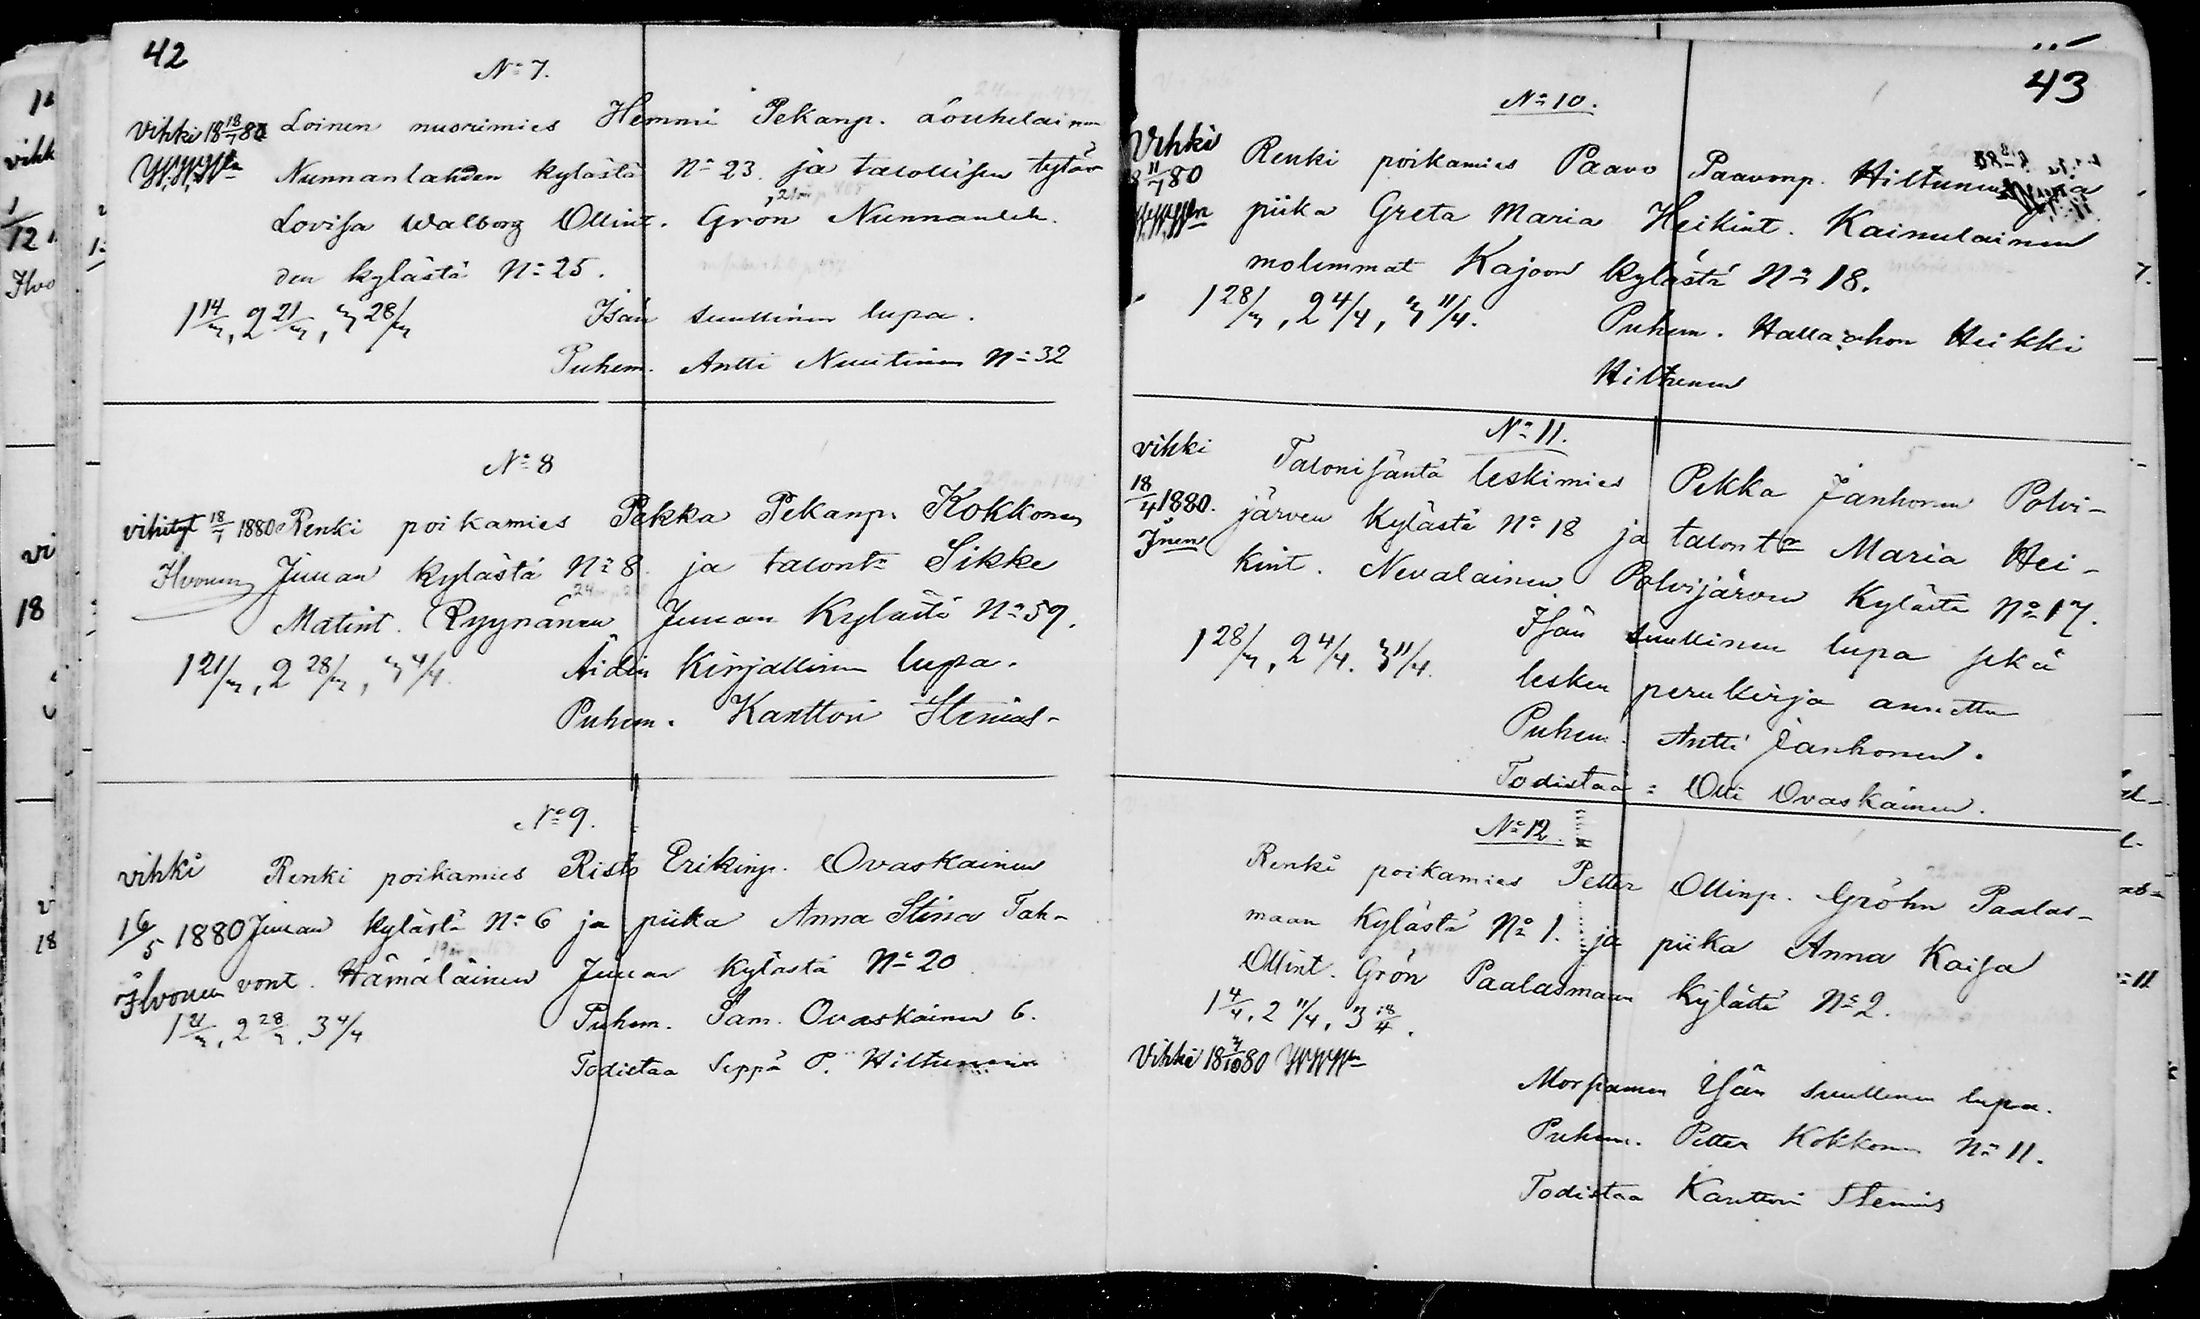 42
No 7.
Vihki 18 18/7 80 Loinen nuorimies Hemmi Pekanp. Louhelainen
Nunnanlahden kylästä No 23. ja talollisen tytär
Lovisa Walborg Ollint. Grön Nunnanlah-
den kylästä No 25.
1 14/3, 2 21/3, 3 28/3 Isän suullinen lupa.
Puhem. Antti Nuutinen No 32
No 8
vihityt 18/7 1880 Renki poikamies Pekka Pekanp. Kokkonen
Ilvonen Juuan kylästä No 8. ja talont. Sikke
Matint. Ryynänen Juuan Kylästä No 59.
1 21/3, 2 28/3, 3 4/4. Äidin Kirjallinen lupa.
Puhem. Kanttori Stenius-
No 9.
vihki Renki poikamies Risto Erikinp. Ovaskainen
16/5 1880 Juuan kylästä No 6 ja piika Anna Stina Tah-
Ilvonen vont. Hämäläinen Juuan Kylästä No 20
1 21/3, 2 28/3, 3 4/4 Puhem. Sam. Ovaskainen 6.
Todistaa Seppä P. Hiltunen
43
No 10.
Vihki Renki poikamies Paavo Paavonp. Hiltunen ja
18 11/7 80 piika Greta Maria Heikint. Kainulainen
molemmat Kajoon kylästä No 18.
1 28/3, 2 4/4, 3 11/4. Puhem. Halla-ahon Heikki
Hiltunen
No 11.
vihki Talonisäntä leskimies Pekka Janhonen Polvi-
18/4 1880. järven Kylästä No 18 ja talontr Maria Hei-
kint. Nevalainen Polvijärven Kylästä No 17.
Isän suullinen lupa sekä
1 28/3, 2 4/4. 3 11/4. lesken perukirja annettu
Puhem. Antti Janhonen.
Todistaa: Olli Ovaskainen.
No 12.
Renki poikamies Petter Ollinp. Gröhn Paalas-
maan Kylästä No 1. ja piika Anna Kaisa
Ollint. Grön Paalasmaan Kylästä No 2.
1 4/4, 2 11/4, 3 18/4.
Vihki 18 3/10 80
Morsiamen Isän suullinen lupa.
Puhem. Petter Kokkonen No 11.
Todistaa Kanttori Stenius